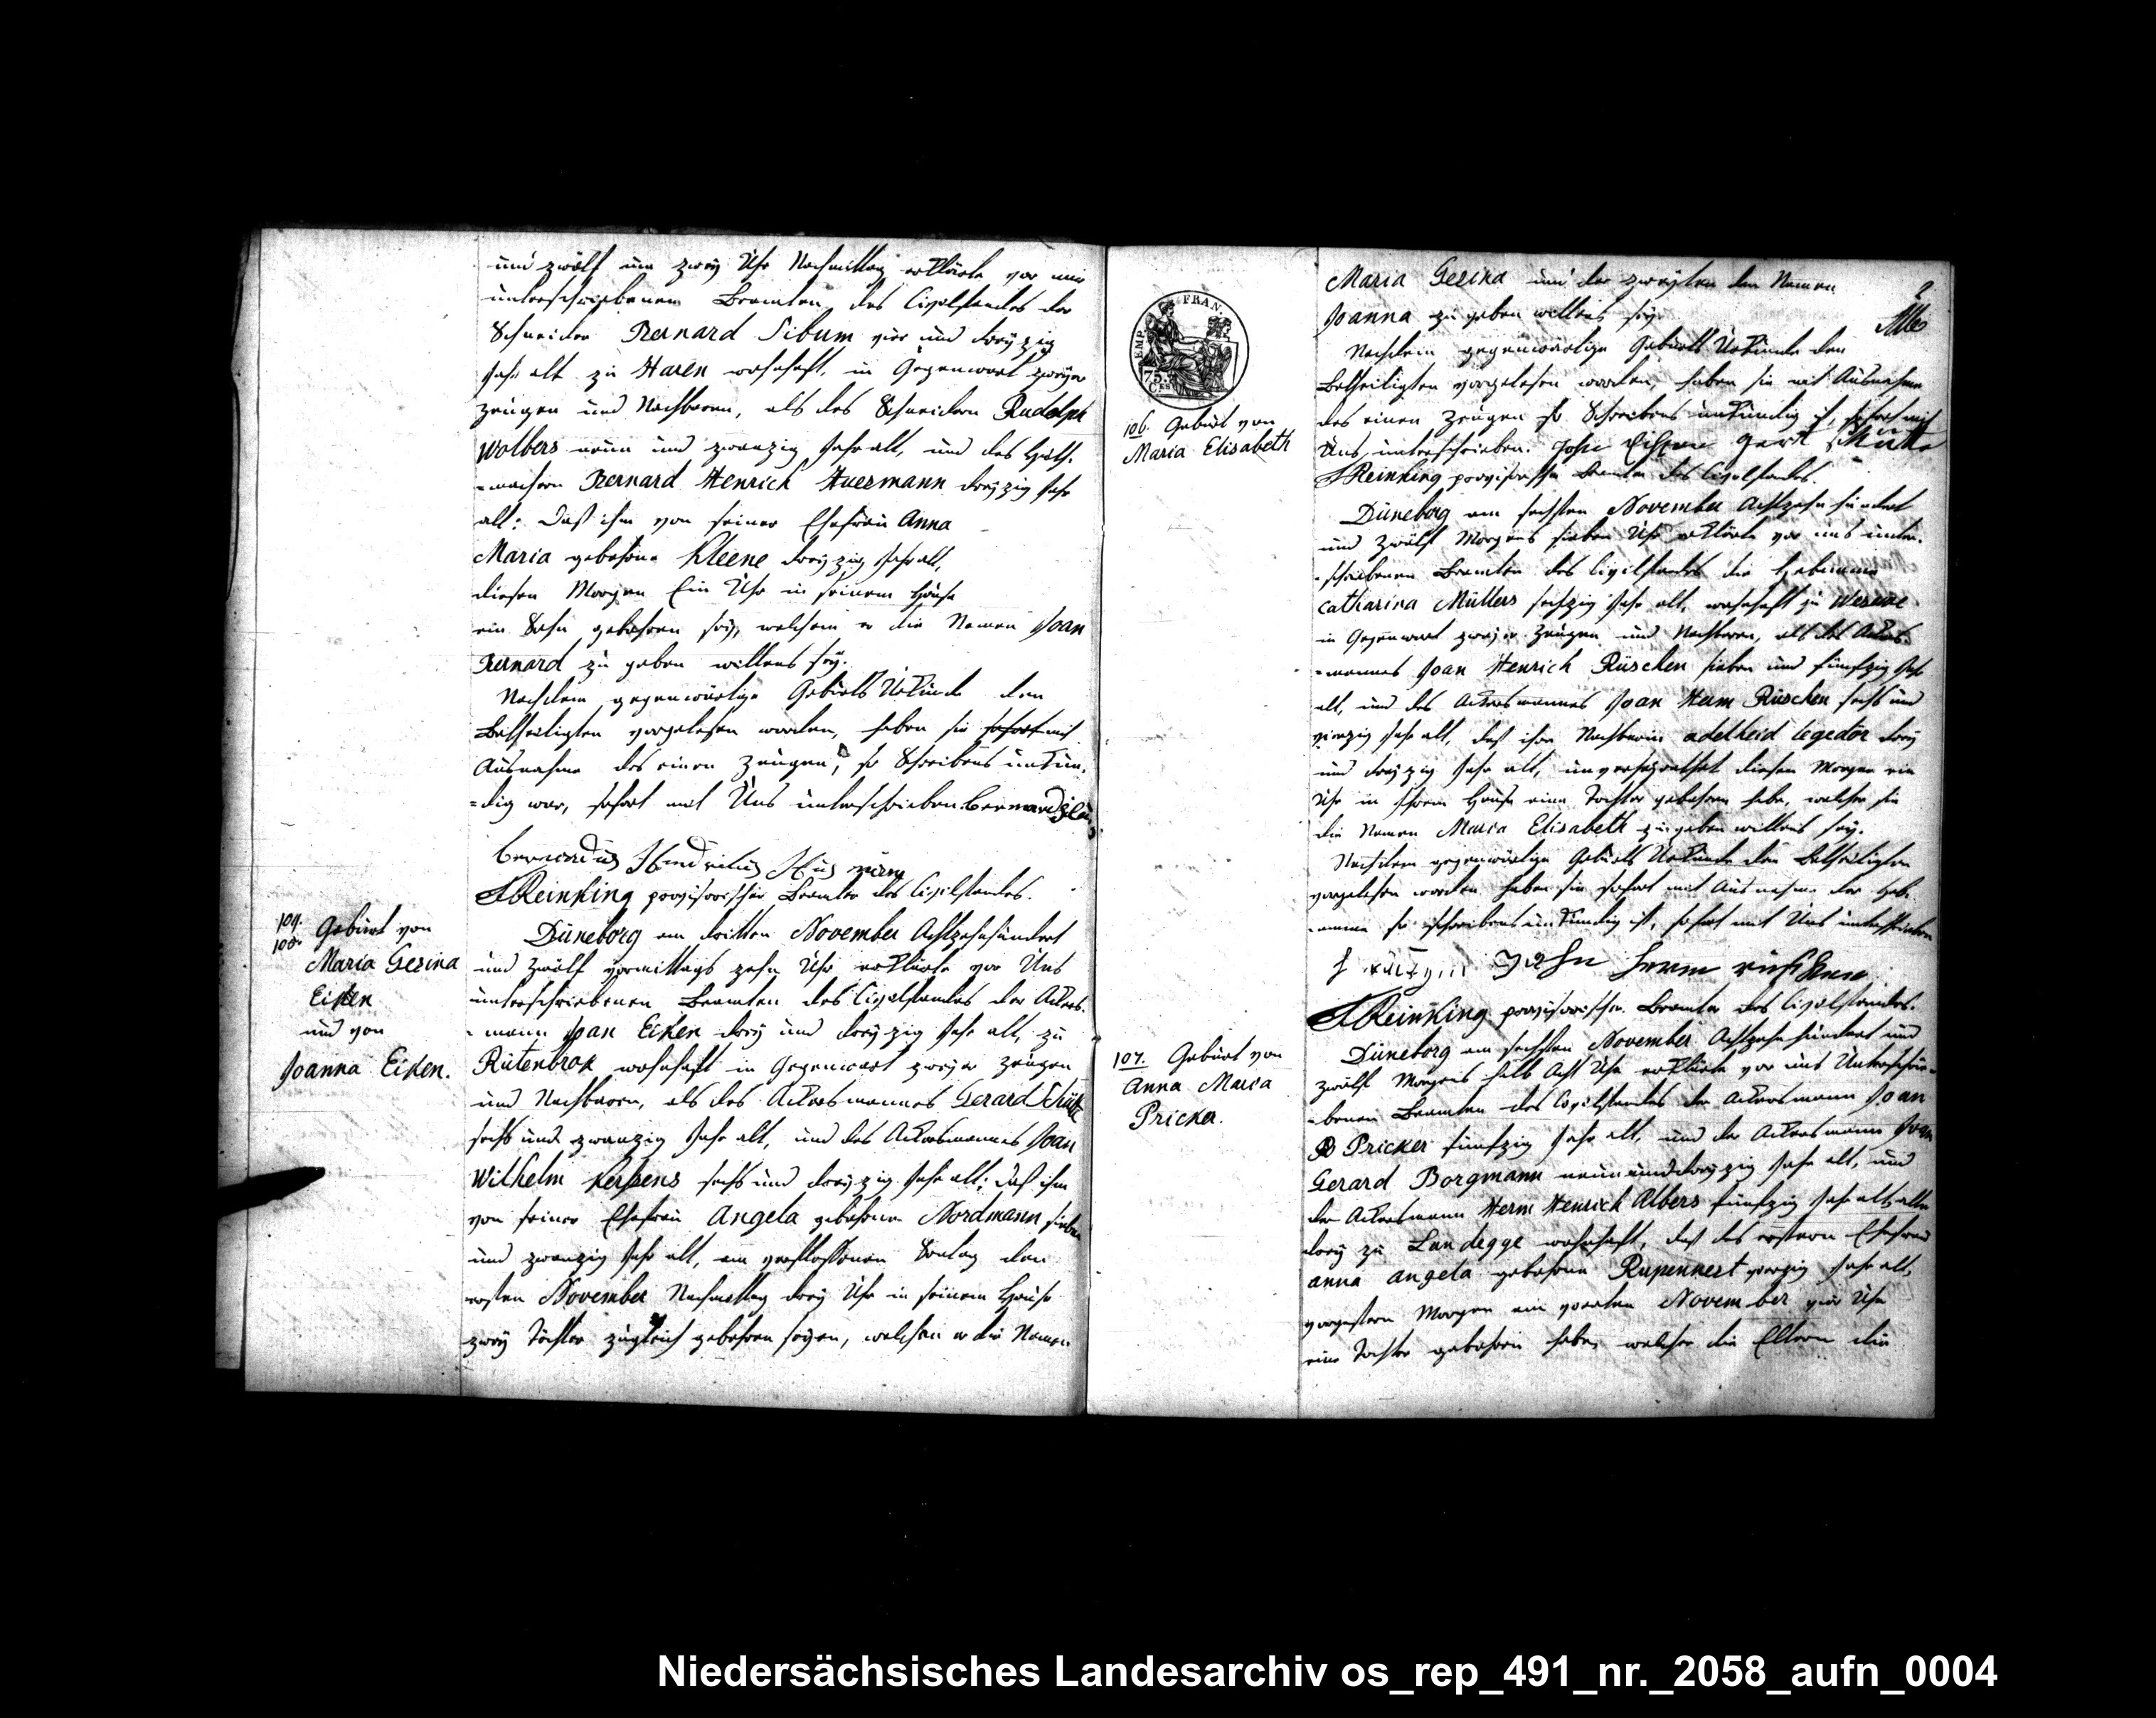 und zwölf um zwey Uhr Nachmittag erklärte vor mir
unterschriebenem Beamten des Civilstandes der
Schneider Bernard Sibum vier und dreyzig
Jahr alt zu Haren wohnhaft, in Gegenwart zweyer
Zeugen und Nachbaren, als des Schneidern Rudolph
Wolbers neun und zwanzig Jahr alt, und des Huth-
-machern Bernard Henrich Huesmann dreyzig Jahr
alt: Daß ihm von seiner Ehefrau Anna
Maria gebohrne Kleene dreyzig Jahr alt,
diesen Morgen Ein Uhr in seinem Hause
ein Sohn gebohren sey, welchem er die Namen Joan
Bernard zu geben willens sey.
Nachdem gegenwärtige Geburts Urkunde den
Betheiligten vorgelesen worden, haben sie sofort mit
Ausnahme des einen Zeugen, so Schreibens unkün-
-dig war, sofort mit Uns unterschrieben. Bernard
Bernardus Hindricus Hus
Reinking provisorischer Beamter des Civilstandes.
104.
105.
Geburt von
Maria Gesina
Eiken
und von
Joanna Eiken.
Düneborg am dritten November Achtzehnhundert
und zwölf vormittags zehn Uhr erklärte vor Uns
unterschriebenen Beamten des Civilstandes der Ackers-
-mann Joan Eiken drey und dreyzig Jahr alt, zu
Rütenbrok wohnhaft in Gegenwart zweyer Zeugen
und Nachbaren, als des Ackersmannes Gerard Schütte
sechs und zwanzig Jahr alt, und des Ackersmannes Joan
Wilhelm Kerßens sechs und dreyzig Jahr alt; daß ihm
von seiner Ehefrau Angela gebohrne Nordmann sieben
und zwanzig Jahr alt, am verflossenen Sontag den
ersten November Nachmittag drey Uhr in seinem Hause
zwey Töchter zugleich gebohren seyen, welchen er die Namen
EMP. FRAN.
75.
CES
2
Maria Gesina und der zweyten den Namen
Joanna zu geben willens sey.
Nachdem gegenwärtige Geburts Urkunde den
Betheiligten vorgelesen worden, haben sie mit Ausnahme
des einen Zeugen so Schreibens unkündig ist, sofort mit
Uns unterschrieben. Gert Schütte
Reinking provisorischer Beamter des Civilstandes.
106. Geburt von
Maria Elisabeth
Düneborg am sechsten November Achtzehnhundert
und zwölf Morgens sieben Uhr erklärte vor uns unter-
-schriebenen Beamten des Civilstandes die Hebamme
Catharina Müllers sechzig Jahr alt, wohnhaft zu Wesuwe
in Gegenwart zweyer Zeugen und Nachbaren, als des Ackers-
-mannes Joan Henrich Rüschen sieben und fünfzig Jahr
alt, und des Ackersmannes Joan Herm Rüschen sechs und
vierzig Jahr alt, daß ihre Nachbarin Adelheid Tegedor drey
und dreyzig Jahr alt, unverheyrathet diesen Morgen ein
Uhr in ihrem Hause eine Tochter gebohren habe, welcher sie
die Namen Maria Elisabeth zu geben willens sey.
Nachdem gegenwärtige Geburts Urkunde den Betheiligten
vorgelesen worden haben sie sofort mit Ausnahme der Heb-
-amme so schreibens unkündig ist, sofort mit Uns unterschrieben
Jahn Herm rüschen
Reinking provisorischer Beamter des Civilstandes.
107. Geburt von
Anna Maria
Pricker.
Düneborg am sechsten November Achtzehnhundert und
zwölf Morgens halb Acht Uhr erklärte vor uns Unterschrie-
-benen Beamten des Civilstandes der Ackersmann Joan
B Pricker fünfzig Jahr alt, und der Ackersmann Joan
Gerard Borgmann neun und dreyzig Jahr alt, und
der Ackersmann Herm Henrich Albers fünfzig Jahr alt, alle
drey zu Landegge wohnhaft, daß des erstern Ehefrau
Anna Angela gebohrne Rupennest vierzig Jahr alt,
vorgestern Morgen am vierten November vier Uhr
eine Tochter gebohren habe, welcher die Eltern die
Niedersächsisches Landesarchiv os_rep_491_nr._2058_aufn_0004